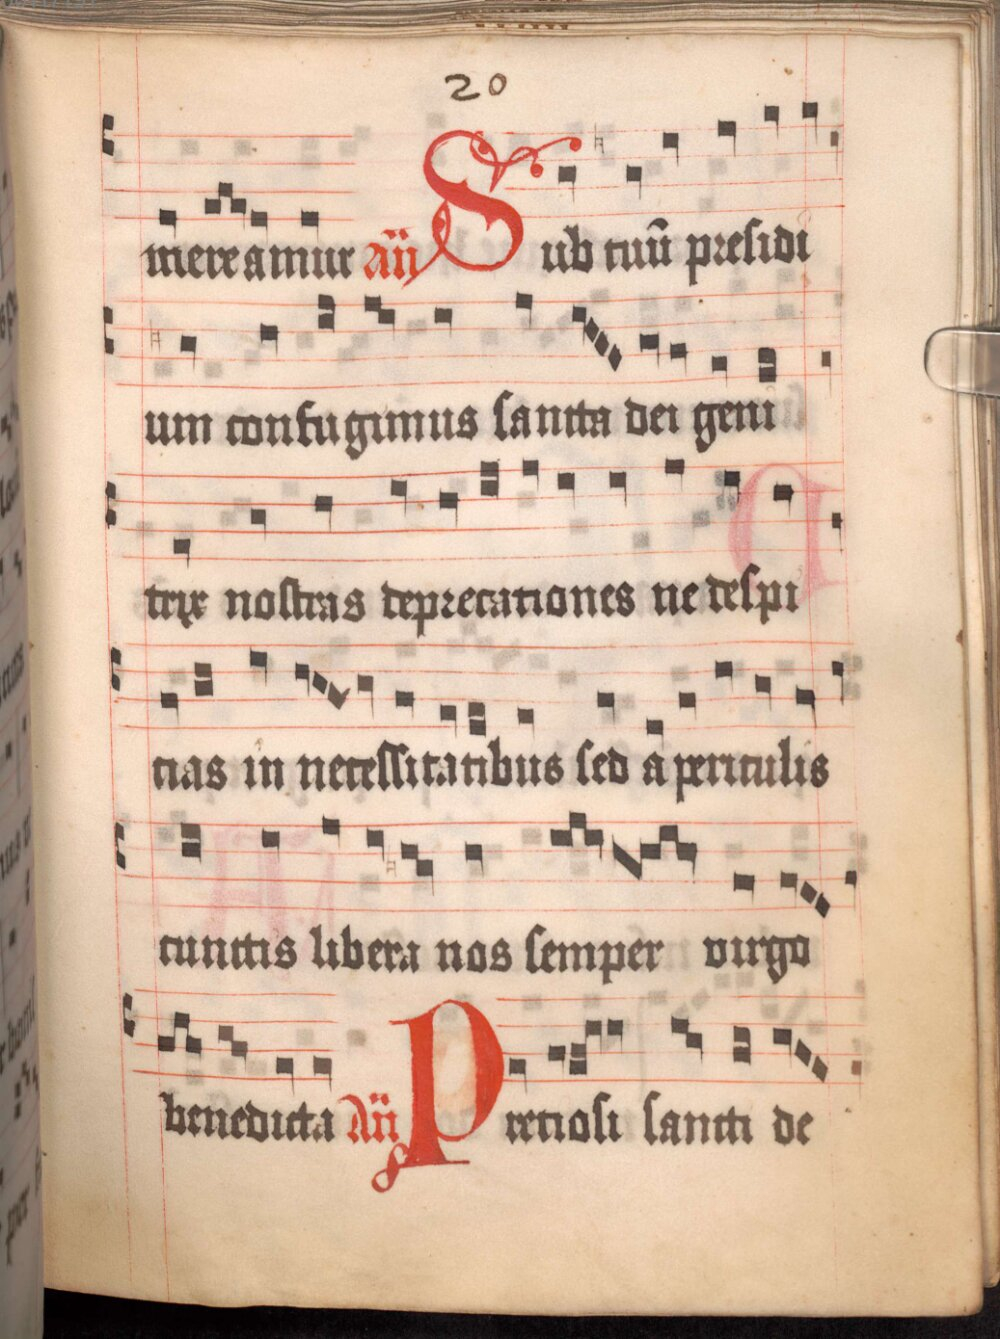 20
mereamur an̄ Sub tuū presidi
um confugimus sancta dei geni
trix nostras deprecationes ne despi
cias in necessitatibus sed a periculis
cunctis libera nos semper virgo
benedicta An̄ Preciosi sancti de